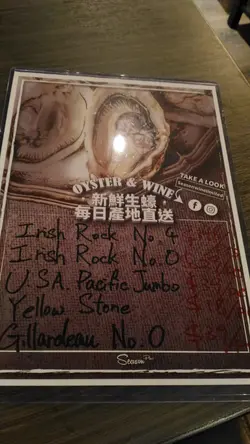 OYSTER & WINE
新鮮生蠔
每日產地直送
TAKE A LOOK!
Irish Rock No. 4
Irish Rock No. 0
U.S.A. Pacific Jumbo
Yellow Stone
Gillardeau No. 0
Season